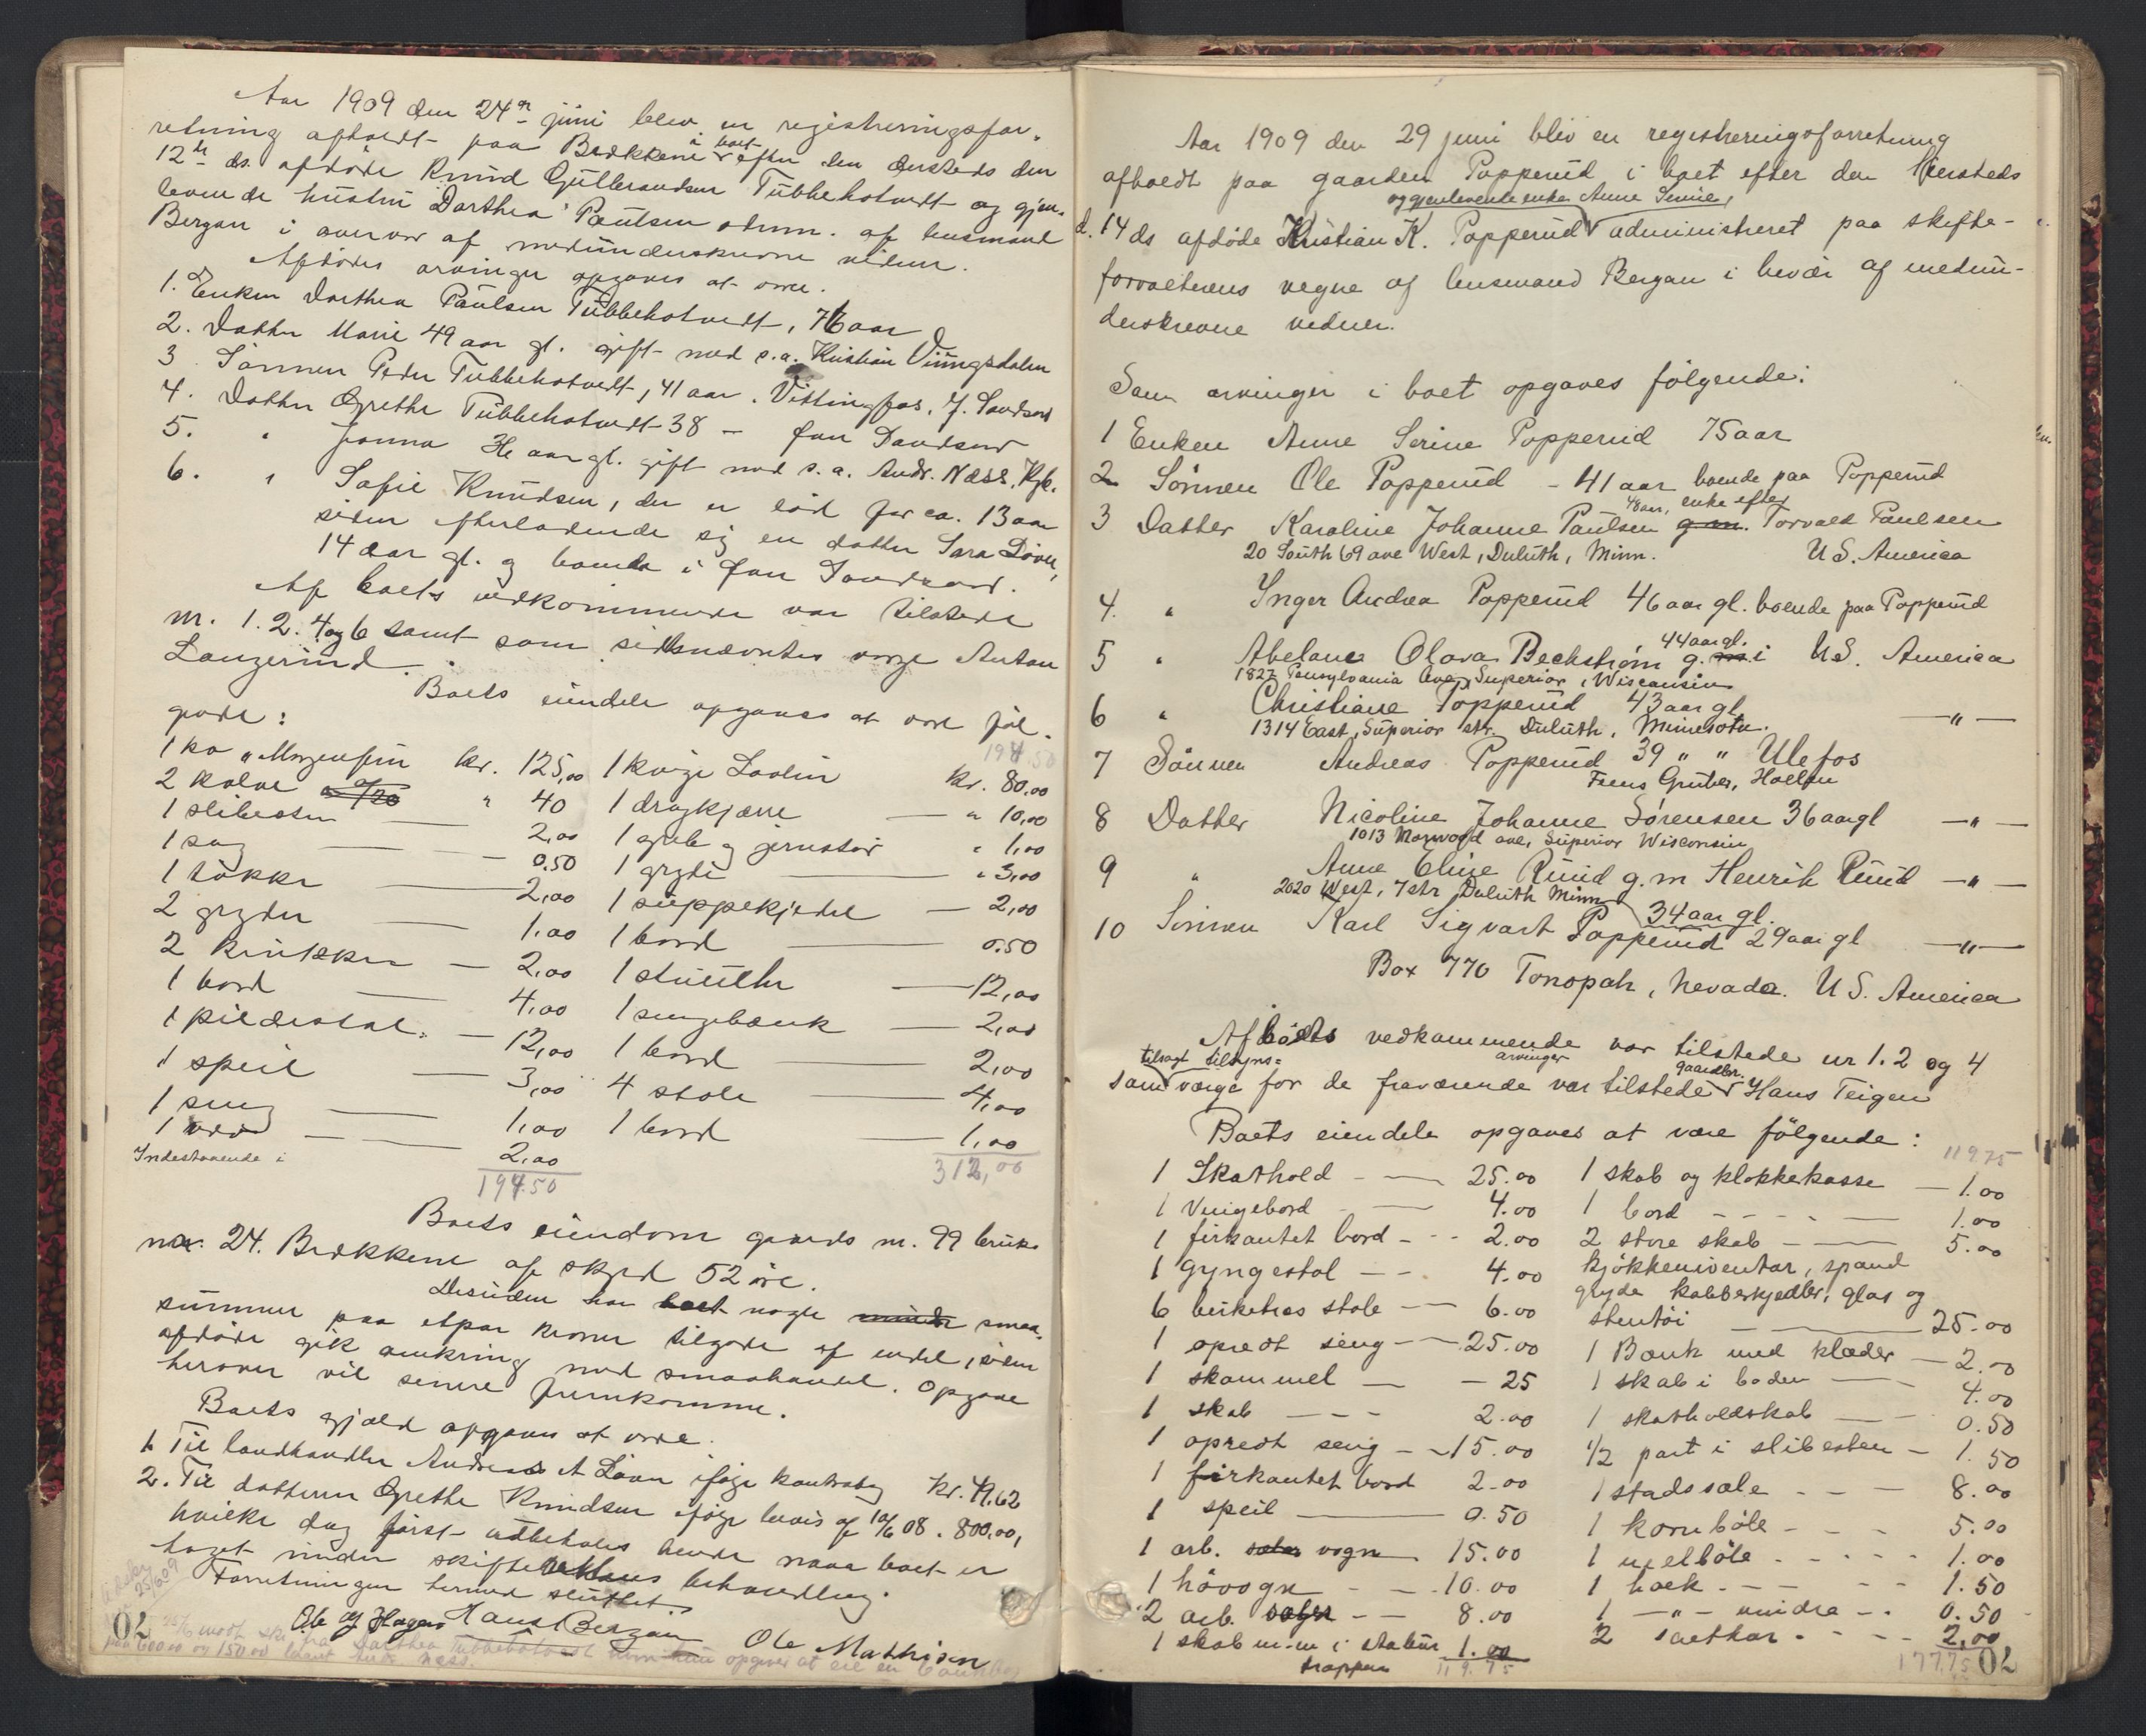 Aar 1909 den 24de juni blev en registreringsfor-
retning afholdt paa Bækkene i boet efter den dersteds den
12te ds. afdøde Knud Gulbrandsen Tubbehotvedt og gjen-
levende hustru Dorthea Paulsen af lensmand
Bergan i overvær af medunderskrevne vidner.
Afdødes arvinger opgaves at være.
1. Enken Dorthea Paulsen Tubbehotvedt, 76 aar
2. Datter Marie 49 aar gl. gift med s.a. Kristian Viungsdalen
3 Sønnen Peder Tubbehotvedt, 41 aar. Vittingfos, J. Sandsvær
4. Datter Grethe Tubbehotvedt 38 —
5. " Janna aar gl. gift med s.a. Andr. Næss, Kgb.
6. " Sofie Knudsen, der er død for ca. 13 aar
siden efterladende sig en datter Sara Løver,
14 aar gl. og boende i Sandsvær.
Af boets vedkommende var tilstede
nr. 1. 2. 4 og 6 samt som verge Anton
Langerud.
Boets eiendele opgaves at være føl-
gende:
194.50
1 ko "Morgenfrue kr. 125,00 1 kvige Lovlin kr. 80.00
2 kalve a/20 " 40 1 dragkjærre — " 10,00
1 slibesten — 2,00 1 greb og jernstør " 1,00
1 sag — 0.50 1 gryde — " 3,00
1 takke — 2,00 1 suppekjedel — 2,00
2 gryder — 1.00 1 bord — 0.50
2 krukker — 2,00 1 stuuhr — 12,00
1 bord — 4,00 1 sengebænk — 2,00
1 pidestal. — 12,00 1 bord — 2,00
1 speil — 3,00 4 stole — 4,00
1 seng — 1,00 1 bord — 1,00
1 — 2,00 312,00
Indestaaende i
194.50
Boets eiendom gaards nr. 99 bruks
nr. 24. Bækkene af skyld 52 øre.
Desuden har boet nogle mindre smaa-
summer paa etpar kroner tilgode af endel, siden
afdøde gik omkring med smaahandel. Opgave
herover vil senere fremkomme.
Boets gjæld opgaves at være.
1. Til landhandler Andreas A Løver ifølge kontrabog kr. 49,62
2. Til datteren Grethe Knudsen ifølge bevis af 10/6 08. 800,00,
hvilke dog først udbetales hende naar boet er
taget under skifterettens behandling.
Forretningen hermed sluttet
Ole Hagen Hans Bergan Ole Mathisen
25/6 09
70
Aar 1909 den 29 juni blev en registreringsforretning
afholdt paa gaarden Popperud i boet efter den hersteds
og gjenlevende enke Anne Serine,
d. 14 ds afdøde Kristian K. Popperud administreret paa skifte-
forvalterens vegne af lensmand Bergan i hevær af medun-
derskrevne vidner.
Som arvinger i boet opgaves følgende:
1 Enken Anne Serine Popperud 75 aar
2 Sønnen Ole Popperud - 41 aar boende paa Popperud
48 aar, enke efter
3 Datter Karoline Johanne Paulsen g.m. Torvald Paulsen
20 South 69 ave West, Duluth, Minn. U S. America
4. " Inger Andrea Popperud 46 aar gl. boende paa Popperud
44 aar gl.
5 " Abelone Olava Beckstrøm g. m. i U S. America
1827 Pensylvania Ave, Superior, Wisconsin
6 " Christiane Popperud 43 aar gl — " —
1314 East, Superior str. Duluth, Minnesota.
7 Sønnen Andreas Popperud 39 " " Ulefos
Fens Gruber, Hollen
8 Datter Nicoline Johanne Sørensen 36 aar gl — " —
1013 Norwood ave, Superior Wisconsin
9 " Anne Eline Ruud g.m Henrik Ruud — " —
2020 West, 7 str Duluth Minn 34 aar gl.
10 Sønnen Karl Sigvart Popperud 29 aar gl — " —
Box 770 Tonopah, Nevada. U S. America
Af boets vedkommende var tilstede nr 1. 2 og 4
tilsagt tilsyns= arvinger gaardbr.
som værge for de fraværende var tilstede Hans Teigen
Boets eiendele opgaves at være følgende:
119.75
1 Skathold — 25.00 1 skab og klokkekasse — 1.00
1 Vingebord — 4.00 1 bord — 1.00
1 firkantet bord — 2.00 2 store skab — 5.00
1 gyngestol — 4.00 kjøkkeninventar, spand
6 birketræs stole — 6.00 gryde kobberkjedler, glas og
1 opredt seng — 25.00 stentøi — 25.00
1 skammel — - 25 1 Bænk med klæder — 2.00
1 skab — 2.00 1 skab i boden — 4.00
1 opredt seng — 15.00 1 skatholdskab — 0.50
1 firkantet bord 2.00 1/2 part i slibesten — 1.50
1 speil — 0.50 1 stadssale — 8.00
1 arb. vogn 15.00 1 kornbøle — 5.00
1 høvogn — 10.00 1 melbøle — 1.00
2 arb. — 8.00 1 balk — 1.50
1 skab m.m i stalur 1.00 1 — " — mindre — 0.50
trappen 119.75 2 saltkar — 2,00
177.75 70